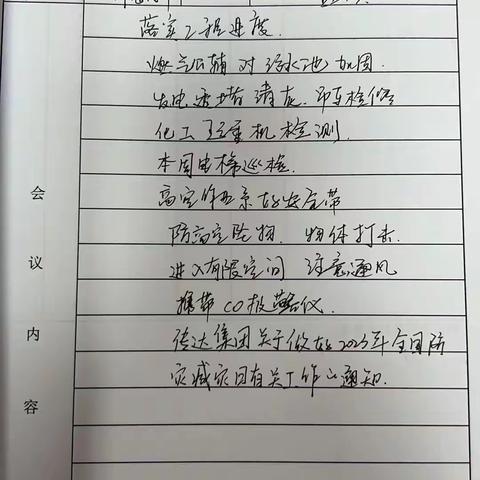 落实工程进度.
燃气公辅对绿水池加固.
发电灰塔清灰.吊车检修
化工行车机检测.
本周电梯巡检.
高空作业系好安全带
防高空坠物.物体打击.
进入有限空间 注意通风
携带CO报警仪.
传达集团关于做好2023年全国防
灾减灾日有关工作的通知.
会议内容